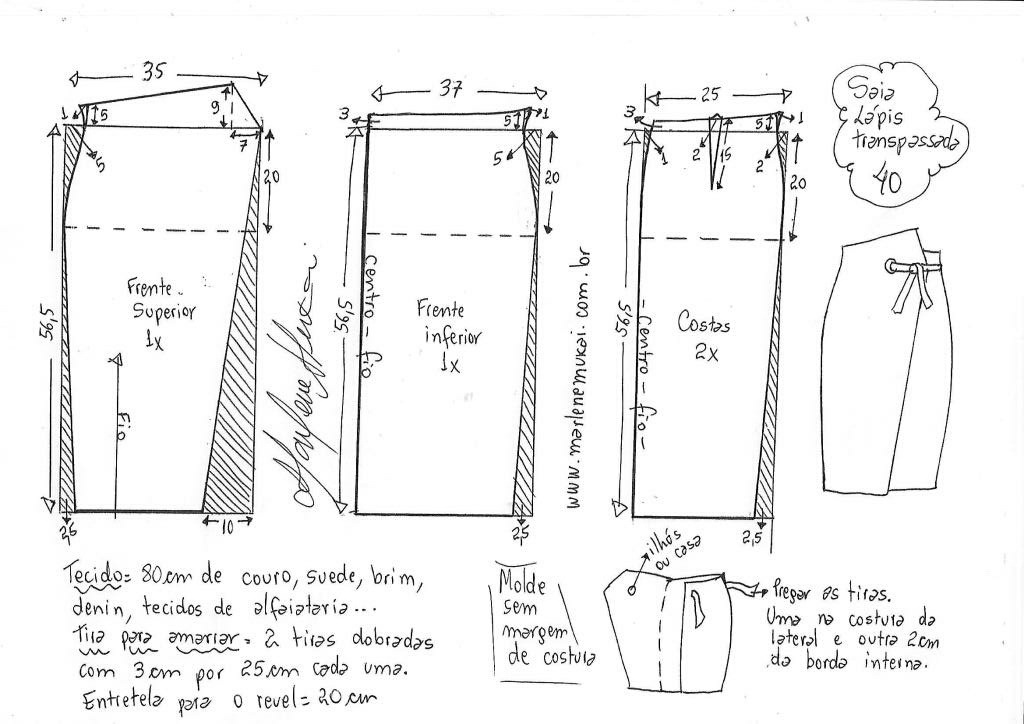 35
1
5
9
7
5
20
56,5
Frente
Superior
1x
Fio
2,5
10
Marlene Mukai
37
3
5
1
5
20
56,5
Centro - fio
Frente
inferior
1x
2,5
www.marlenemukai.com.br
25
3
1
2
15
5
1
2
20
56,5
- Centro - fio -
Costas
2x
2,5
Saia
Lápis
transpassada
40
Tecido= 80cm de couro, suede, brim,
denin, tecidos de alfaiataria...
Tira para amarrar= 2 tiras dobradas
com 3cm por 25cm cada uma.
Entretela para o revel= 20cm
Molde
sem
margem
de costura
ilhós
ou casa
Pregar as tiras.
Uma na costura da
lateral e outra 2cm
da borda interna.